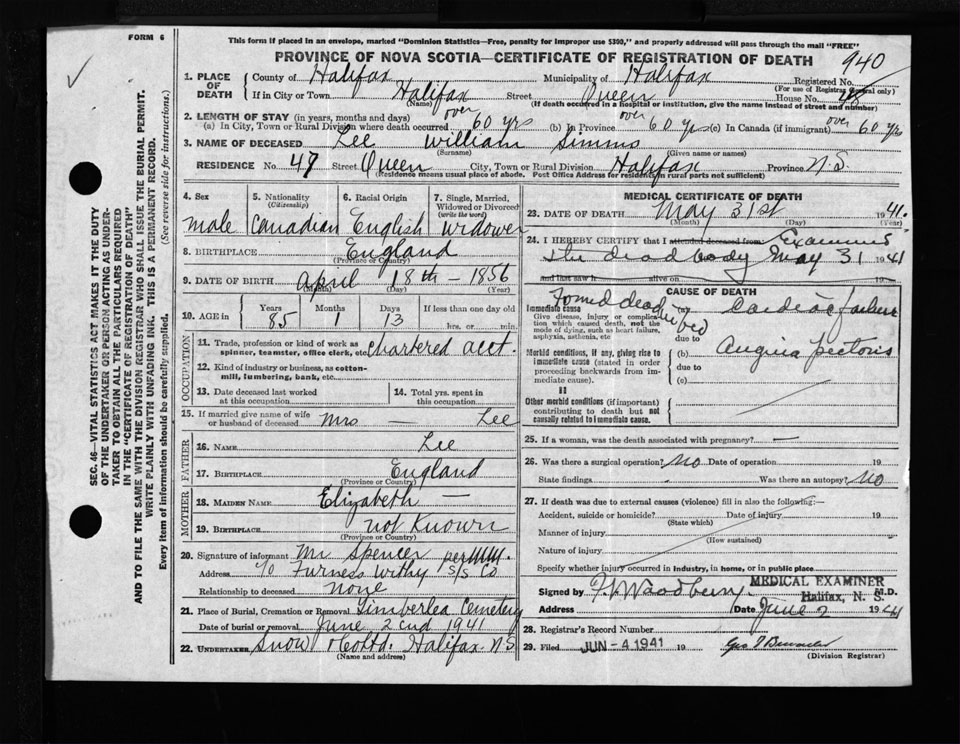 FORM 6
This form if placed in an envelope, marked "Dominion Statistics—Free, penalty for improper use $300," and properly addressed will pass through the mail "FREE"
PROVINCE OF NOVA SCOTIA—CERTIFICATE OF REGISTRATION OF DEATH
940
1. PLACE OF DEATH
County of Halifax Municipality of Halifax Registered No.
(For use of Registrar General only)
If in City or Town Halifax Street Queen House No.
(Name) (If death occurred in a hospital or institution, give the name instead of street and number)
2. LENGTH OF STAY (in years, months and days)
(a) In City, Town or Rural Division where death occurred over 60 yrs (b) In Province over 60 yrs (c) In Canada (if immigrant) over 60 yrs
3. NAME OF DECEASED Lee William Simms
(Surname) (Given name or names)
RESIDENCE No. 47 Street Queen City, Town or Rural Division Halifax Province N.S.
(Residence means usual place of abode. Post Office Address for residents in rural parts not sufficient)
4. Sex
male
5. Nationality (Citizenship)
Canadian
6. Racial Origin
English
7. Single, Married, Widowed or Divorced (write it)
Widower
8. BIRTHPLACE England
(Province or Country)
9. DATE OF BIRTH April 18th - 1856
(Month) (Day) (Year)
10. AGE in Years Months Days If less than one day old
85 1 13 hrs. or min.
OCCUPATION
11. Trade, profession or kind of work as spinner, teamster, office clerk, etc. Chartered acct.
12. Kind of industry or business, as cotton-mill, lumbering, bank, etc.
13. Date deceased last worked at this occupation
14. Total yrs. spent in this occupation
15. If married give name of wife or husband of deceased Mrs — Lee
FATHER
16. NAME Lee
17. BIRTHPLACE England
(Province or Country)
MOTHER
18. MAIDEN NAME Elizabeth —
19. BIRTHPLACE not Known
(Province or Country)
20. Signature of informant Mr Spencer per MM.
Address c/o Furness Withy S/S Co
Relationship to deceased none
21. Place of Burial, Cremation or Removal Timberlea Cemetery
Date of burial or removal June 2nd 1941
22. UNDERTAKER Snow & Co Ltd. Halifax N.S.
(Name and address)
MEDICAL CERTIFICATE OF DEATH
23. DATE OF DEATH May 31st 1941.
(Month) (Day) (Year)
24. I HEREBY CERTIFY that I attended deceased from Examined
the dead body May 31 1941
and last saw h alive on 19
CAUSE OF DEATH
Found dead in bed
Immediate cause
Give disease, injury or complication which caused death, not the mode of dying, such as heart failure, asphyxia, asthenia, etc
Cardiac failure
due to
Morbid conditions, if any, giving rise to immediate cause (stated in order proceeding backwards from immediate cause).
(b) Angina pectoris
due to
(c)
II
Other morbid conditions (if important) contributing to death but not causally related to immediate cause.
25. If a woman, was the death associated with pregnancy? —
26. Was there a surgical operation? No Date of operation 19
State findings Was there an autopsy? No
27. If death was due to external causes (violence) fill in also the following:—
Accident, suicide or homicide? Date of injury 19
(State which)
Manner of injury
(How sustained)
Nature of injury
Specify whether injury occurred in industry, in home, or in public place
Signed by F.V. Woodbury. M.D.
MEDICAL EXAMINER
Halifax, N. S.
Address Date June 2 1941
28. Registrar's Record Number
29. Filed JUN -4 1941 19
(Division Registrar)
SEC. 46—VITAL STATISTICS ACT MAKES IT THE DUTY
OF THE UNDERTAKER OR PERSON ACTING AS UNDER-
TAKER TO OBTAIN ALL THE PARTICULARS REQUIRED
IN THE "CERTIFICATE OF REGISTRATION OF DEATH"
AND TO FILE THE SAME WITH THE DIVISION REGISTRAR WHO SHALL ISSUE THE BURIAL PERMIT.
WRITE PLAINLY WITH UNFADING INK. THIS IS A PERMANENT RECORD.
Every item of information should be carefully supplied. (See reverse side for instructions.)